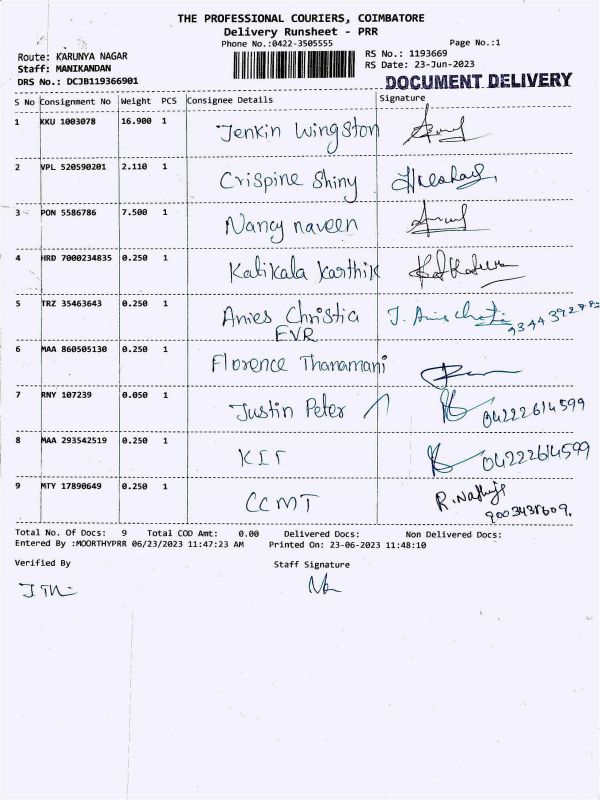 THE PROFESSIONAL COURIERS, COIMBATORE
Delivery Runsheet - PRR
Phone No.:0422-3505555 Page No.:1
Route: KARUNYA NAGAR RS No.: 1193669
Staff: MANIKANDAN RS Date: 23-Jun-2023
DRS No.: DCJB119366901 DOCUMENT DELIVERY
S No Consignment No Weight PCS Consignee Details Signature
1 KKU 1003078 16.900 1 Jenkin Wingston
2 VPL 520590201 2.110 1 Crispine Shiny
3 PON 5586786 7.500 1 Nancy naveen
4 HRD 7000234835 0.250 1 Kalikala Karthik
5 TRZ 35463643 0.250 1 Anies Christia
FVR
6 MAA 860505130 0.250 1 Florence Thanamani
7 RNY 107239 0.050 1 Justin Peter 04222614599
8 MAA 293542519 0.250 1 KIT 04222614599
9 MTY 17890649 0.250 1 CCMT
Total No. Of Docs: 9 Total COD Amt: 0.00 Delivered Docs: Non Delivered Docs:
Entered By :MOORTHYPRR 06/23/2023 11:47:23 AM Printed On: 23-06-2023 11:48:10
Verified By Staff Signature